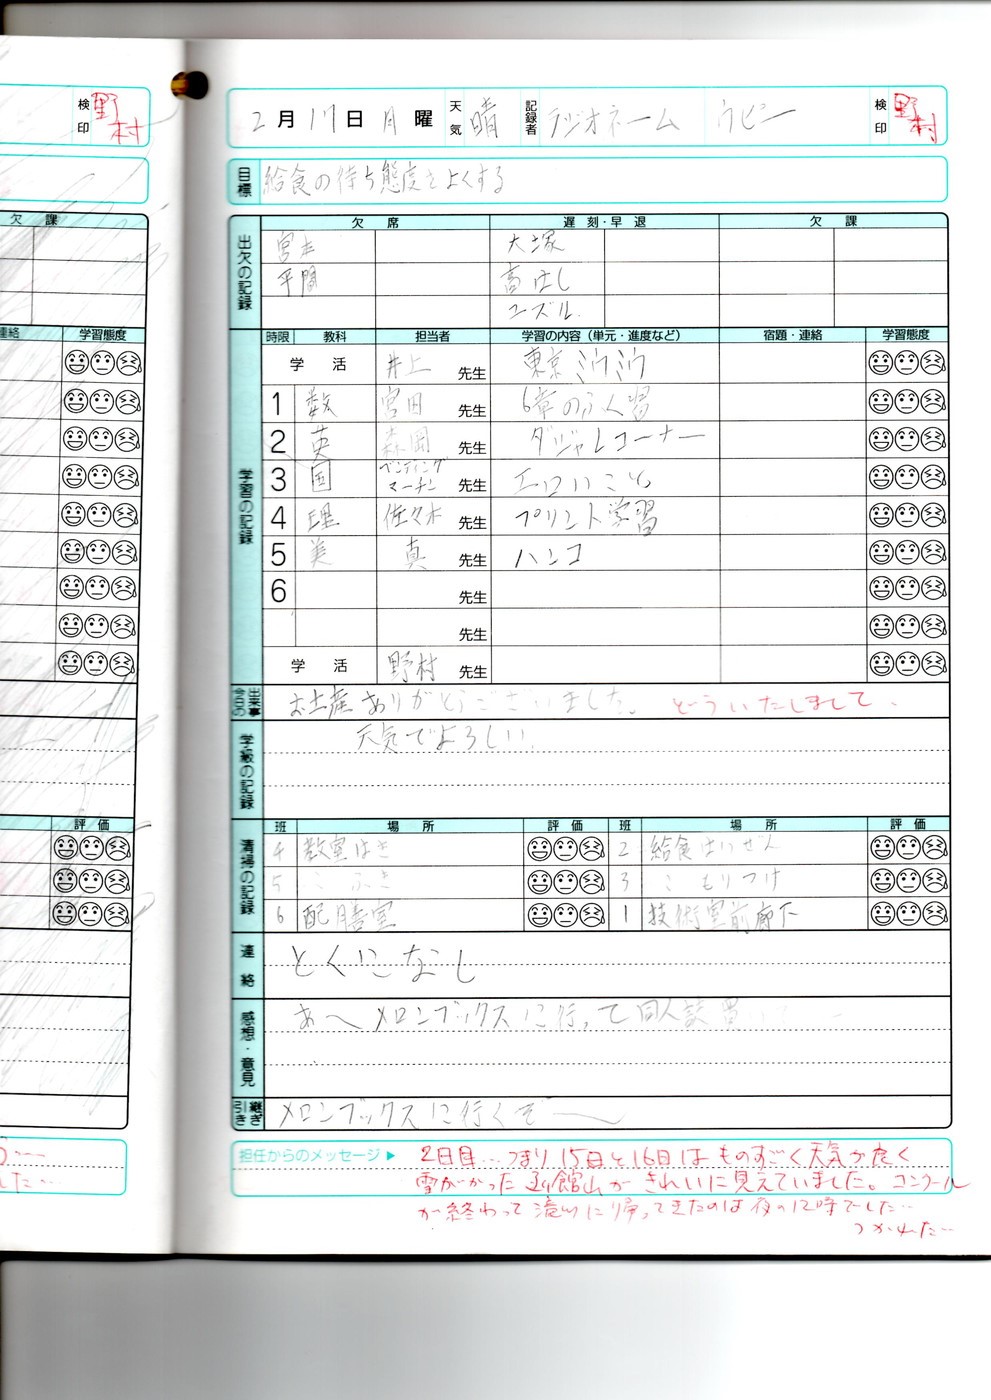 検印 野村
2月17日月曜 天気 晴 記録者 ラジオネーム ウピー 検印 野村
目標 給食の待ち態度をよくする
欠課
出欠の記録 欠席 遅刻・早退 欠課
大塚
平間 高はし
ユーズル
連絡 学習態度
学習の記録 時限 教科 担当者 学習の内容(単元・進度など) 宿題・連絡 学習態度
学活 井上 先生 東京ミウミウ
1 数 宮田 先生 6章のふく習
2 英 森岡 先生 ダジャレコーナー
3 国 ベンディングマーチン 先生 エロいこと
4 理 佐々木 先生 プリント学習
5 美 真 先生 ハンコ
6 先生
先生
学活 野村 先生
今日の出来事 お土産ありがとうございました。 どういたしまして
学級の記録 天気でよろしい
評価
清掃の記録 班 場所 評価 班 場所 評価
4 教室はき 2 給食はいぜん
5 〃 ふき 3 〃 もりつけ
6 配膳室 1 技術室前廊下
連絡 とくになし
感想・意見 あ〜メロンブックスに行って同人誌
引き継ぎ メロンブックスに行くぞ〜
担任からのメッセージ▶ 2日目…つまり15日と16日はものすごく天気が良く
雪がかった函館山がきれいに見えていました。コンクール
が終わって滝川に帰ってきたのは夜の12時でした…
つかれた…